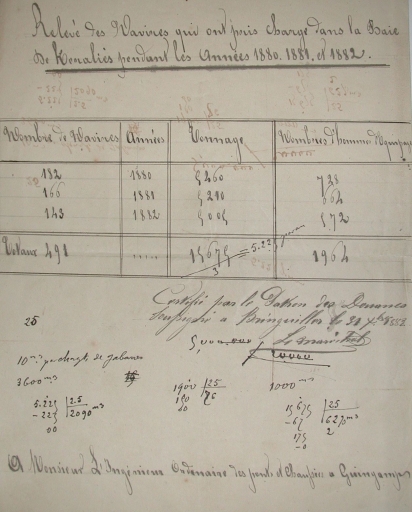 Relevé des Navires qui ont pris charge dans la Baie
de Keraliès pendant les Années 1880. 1881. et 1882.
Nombre de Navires Années Tonnage Nombres d'hommes d'Equipage
182 1880 5460 728
166 1881 5210 664
143 1882 5005 572
Totaux 491 ..... 15675 = 5.225 1964
3
Certifié par le Patron des Douanes
soussigné a Bringuiller le 31 Xbre
25
10 m³ de gabares
3600 m³
1900 25
150 76
00
1000 m³
5.225 2.5
-225 2090 m³
00
15675 25
-67 627 m³
175 2
-0
A Monsieur L'Ingénieur Ordinaire des ponts et Chaussées a Guingamp